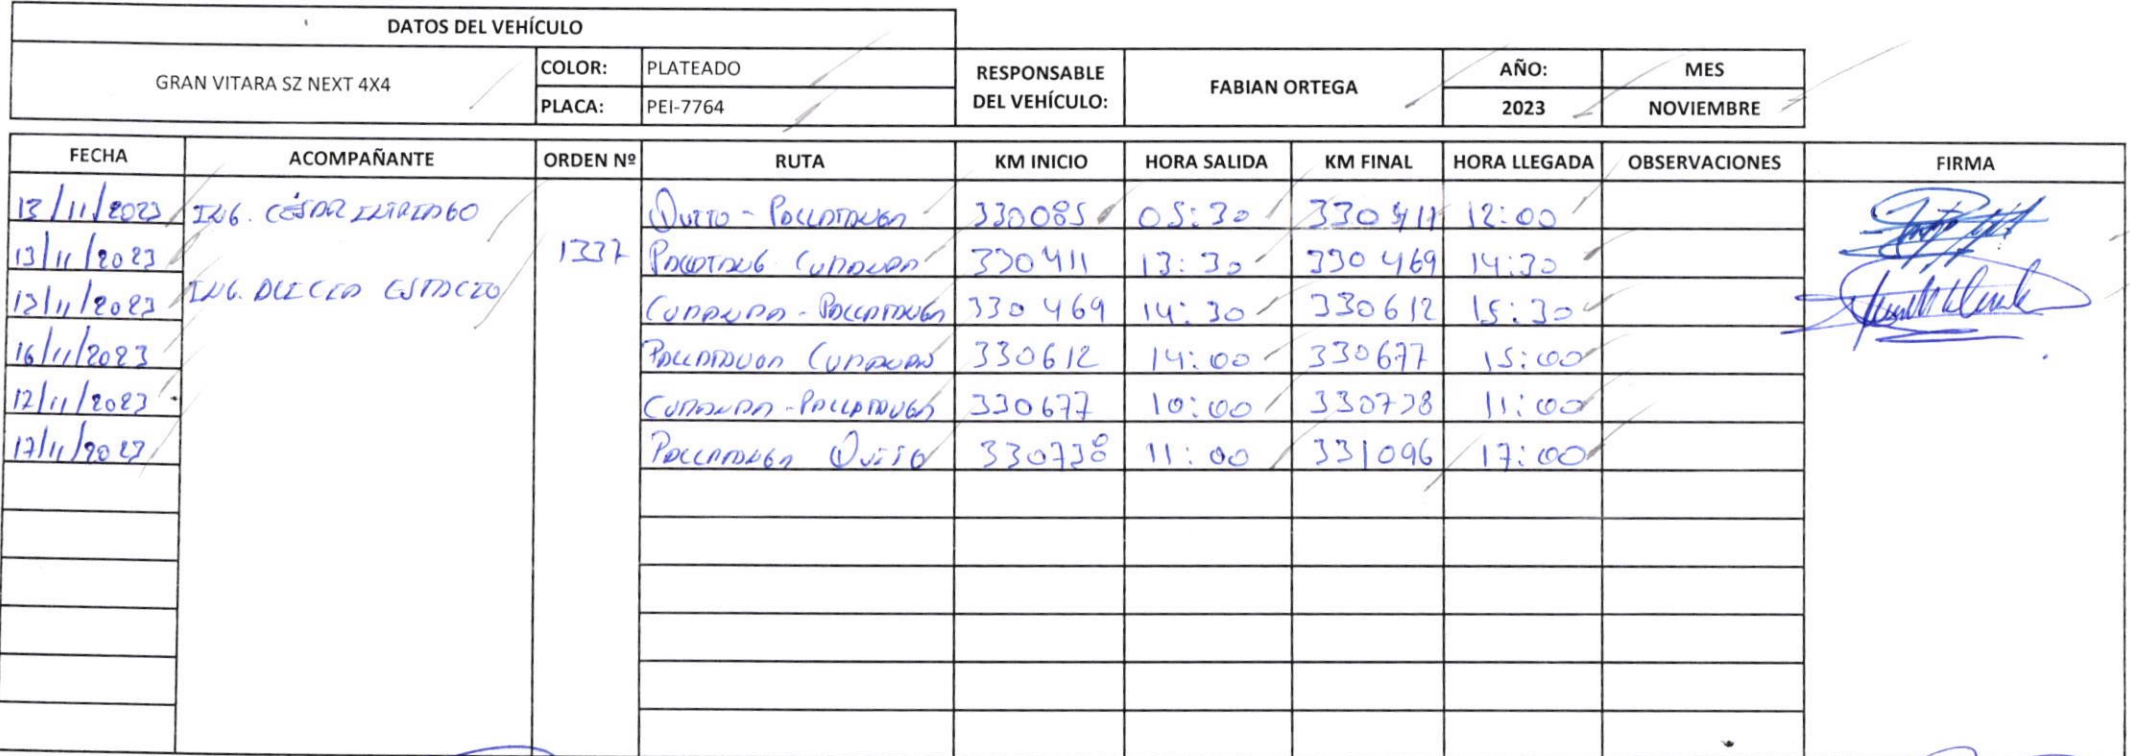 DATOS DEL VEHÍCULO
GRAN VITARA SZ NEXT 4X4 COLOR: PLATEADO RESPONSABLE DEL VEHÍCULO: FABIAN ORTEGA AÑO: MES
PLACA: PEI-7764 2023 NOVIEMBRE
FECHA ACOMPAÑANTE ORDEN Nº RUTA KM INICIO HORA SALIDA KM FINAL HORA LLEGADA OBSERVACIONES FIRMA
13/11/2023 ING. CÉSAR INTRIAGO QUITO - PALLATANGA 330085 05:30 330411 12:00
13/11/2023 1337 330411 13:30 330469 14:30
13/11/2023 ING. ESTACIO CUMANDA - PALLATANGA 330469 14:30 330612 15:30
16/11/2023 PALLATANGA CUMANDA 330612 14:00 330677 15:00
CUMANDA - PALLATANGA 330677 10:00 330738 11:00
17/11/2023 PALLATANGA QUITO 330738 11:00 331096 17:00